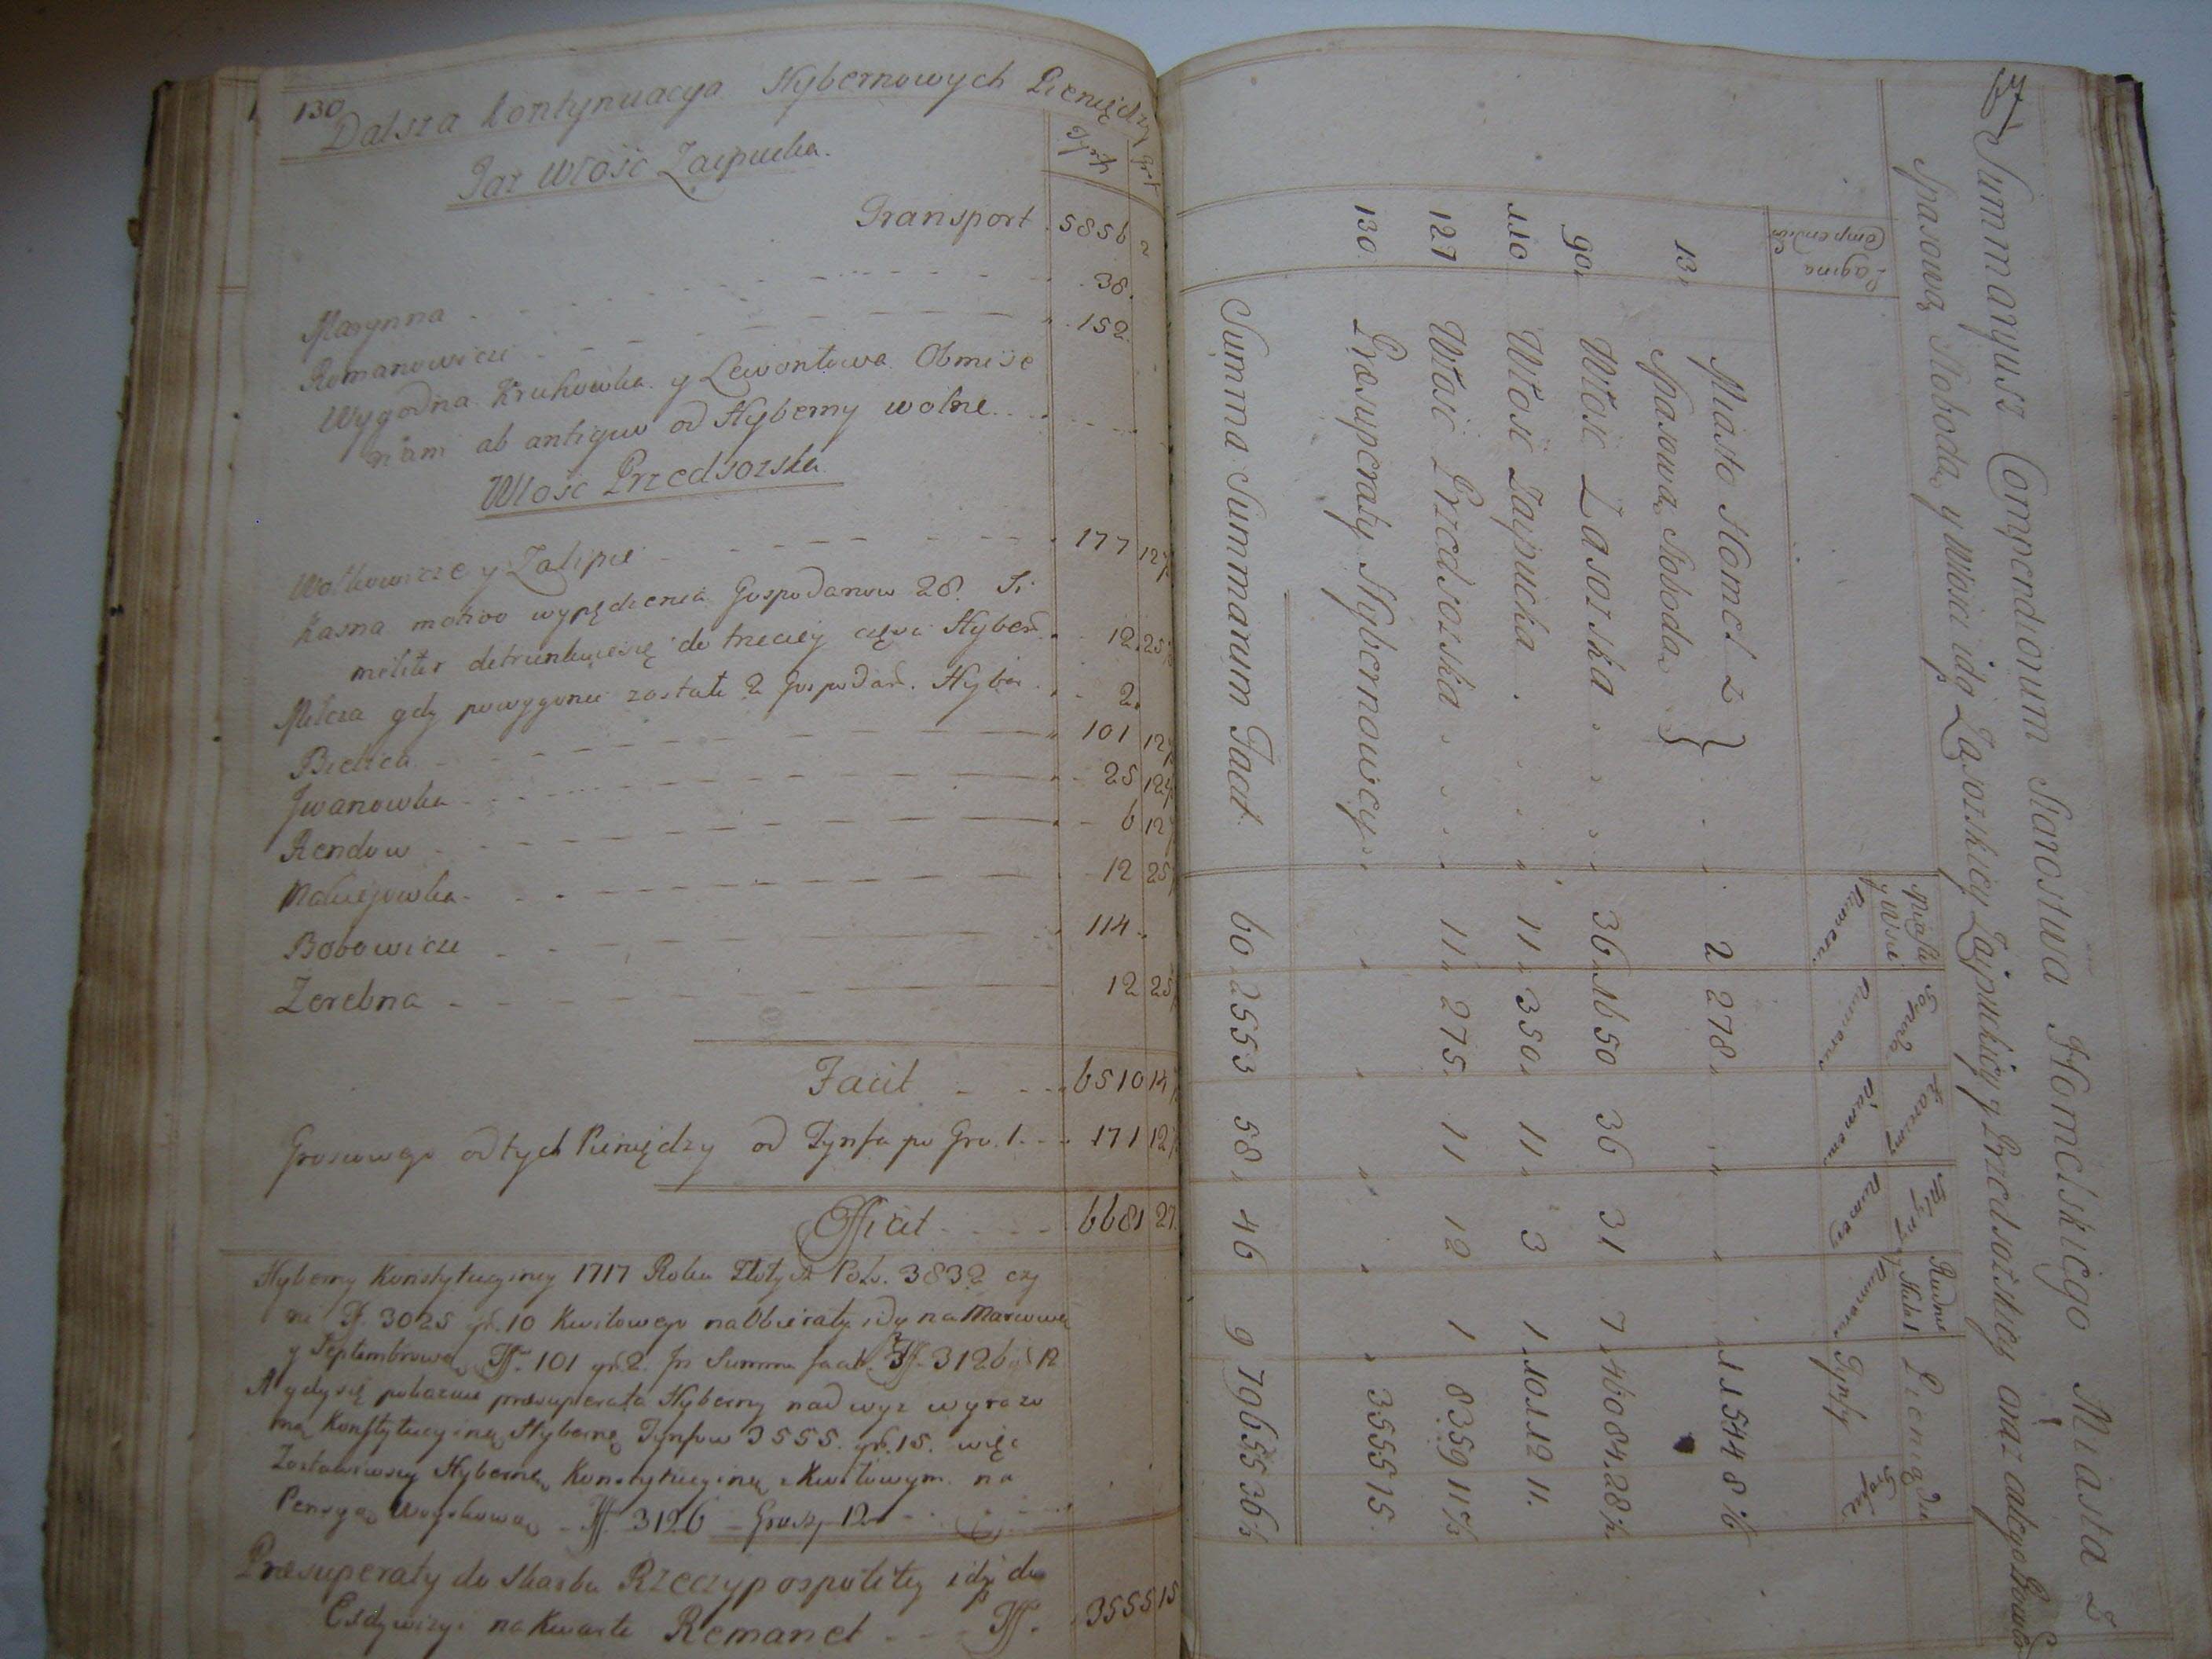 130
Dalsza kontynuacya Hybernowych Pieniędzy
Tynfy gr
Jaż Włość Zaipucka.
Transport 5856 2
Marynna 38.
Romanowicze 152
Wygodna Kruhowka y Lewontowa Obmise
nam ab antiquo od Hyberny wolne
Włość Przedsozska
Wołkowicze y Zalipie 177 12
Kasna motivo wypędzenia Gospodarzow 28. Si
militer detrunkuie się do trzeciey częsci Hybern 12 25
Milcza gdy powygonie zostało 2 Gospodar. Hyber 2.
Bielica 101 12
Jwanowka 25 12
Rendow 6 12
Makiejowka 12 25
Bobowicze 114
Zerebna 12 25
Facit 6510 14
Groszowego od tych Pieniędzy od Tynfa po Gro. 1. 171 12
Efficit 6681 27.
Hyberny Konstytucyiney 1717 Roku Złotych Pols. 3832 czy
ni Tf. 3025 gr. 10 Kwitowego na Obie raty idą na Marcową
y Septembrową Tf. 101 gr. 2. Jn Summa facit Tf. 3126 gr 12
A gdy się pokazuie præsuperata Hyberny nad wyż wyrazo
ną Konstytucyiną Hybernę Tynfow 3555. gr. 15. więc
Zostawiwszy Hybernę Konstytucyiną z Kwitowym na
Pensyą Woyskową Tf. 3126 Groszy 12
Præsuperaty do Skarbu Rzeczypospolitey idzie do
na Kwarte Remanet Tf. 3555 15
Summaryusz Compendiorum Starostwa Homelskiego Miasta z
Spasową Słobodą y Włosci idą Zasozskiey Zaipuckiey y Przedsozskiey oraz całego
Pagina Compendiu
Miasta y Wsie Numero.
Gospoda Numero.
Karczmy Numero.
Młyny Numero
Rudnie y Huta 1 Numero
Pieniądze
Tynfy
Grosze
13 Miasto Homel z } 2 278 11544 8
Spasową Słobodą
90 Włość Zasozska 36 1650 36 31 7 46084. 28
110 Włość Zaipucka 11 350 11 3 1 10112 11.
127 Włość Przedsozska 11 275. 11 12 1 8359 11
130. Præsuperaty Hybernowey 3555 15.
Summa Summarum Facit. 60 2553 58 46 9 79655 36